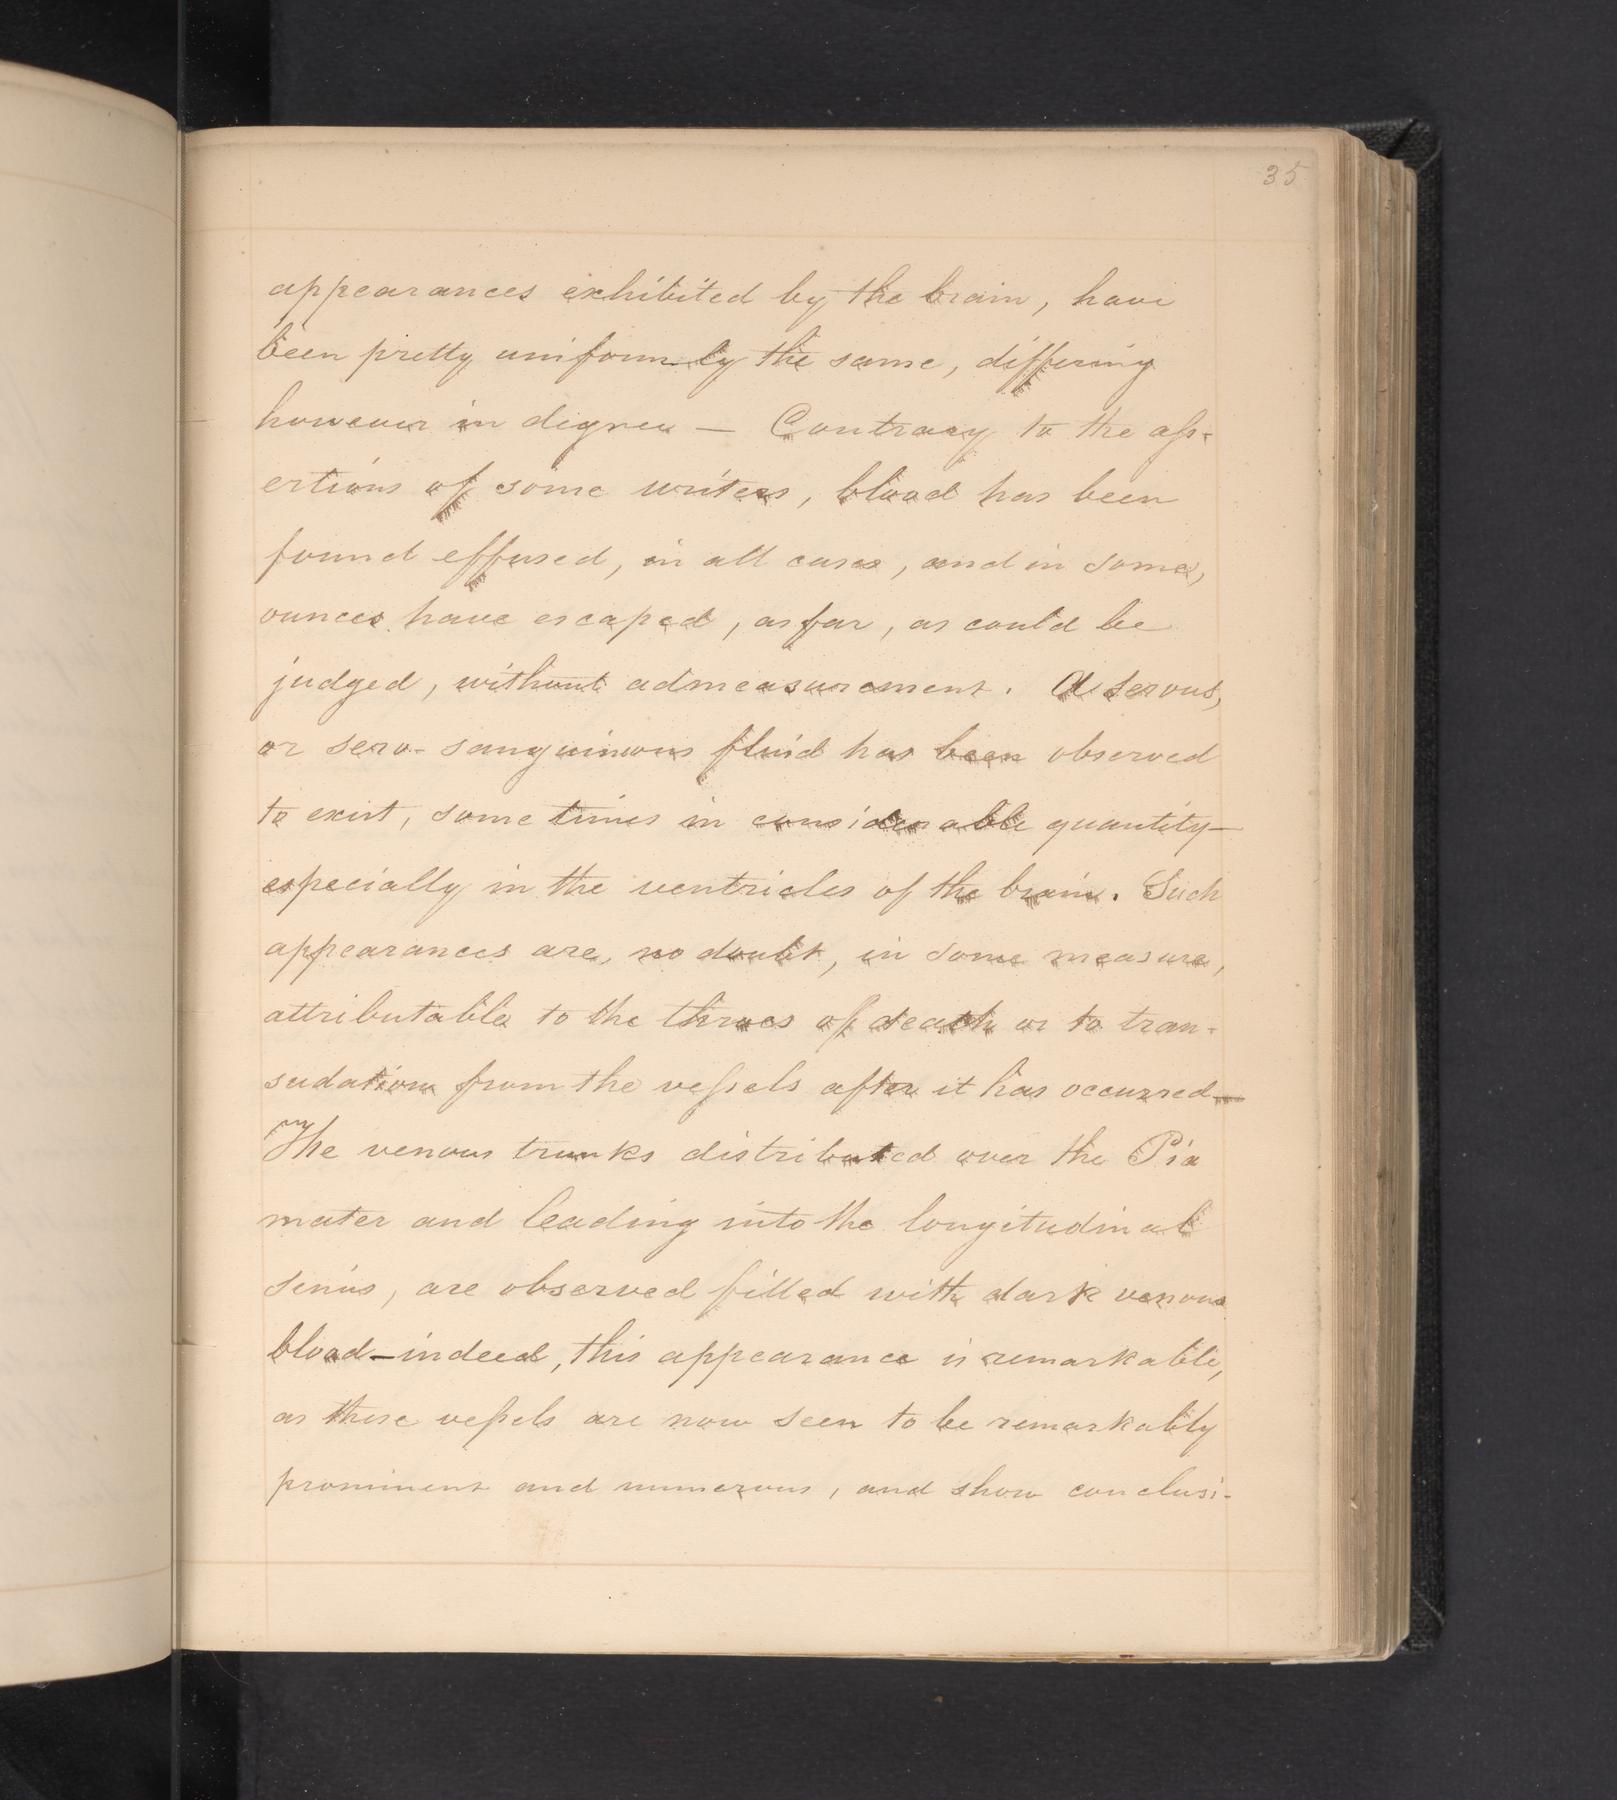 35
appearances exhibited by the brain, have
been pretty uniformly the same, differing
however in degree — Contrary to the ass-
ertions of some writers, blood has been
found effused, in all cases, and in some,
ounces have escaped, as far, as could be
judged, without admeasurement. A serous,
or sero-sanguinous fluid has been observed
to exist, sometimes in considerable quantity—
especially in the ventricles of the brain. Such
appearances are, no doubt, in some measure,
attributable to the throes of death or to tran-
sudation from the vessels after it has occurred—
The venous trunks distributed over the Pia
mater and leading into the longitudinal
sinus, are observed filled with dark venous
blood—indeed, this appearance is remarkable,
as these vessels are now seen to be remarkably
prominent and numerous, and show conclusi-